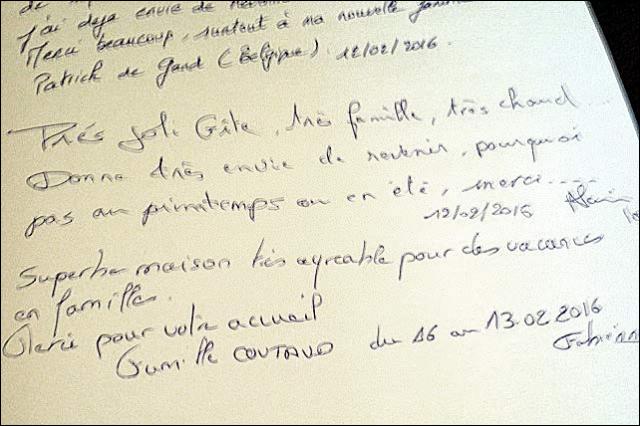 J'ai déjà envie de
Merci beaucoup, surtout à ma nouvelle
Patrick de Gand (Belgique). 12/02/2016.
Très joli Gîte, très famille, très chaud....
Donne très envie de revenir, pourquoi
pas au printemps ou en été, merci.....
12/02/2016 Alain
Superbe maison très agreable pour des vacances
en famille.
Merci pour votre accueil
Famille COUTAUD du 06 au 13.02.2016
Fabienne